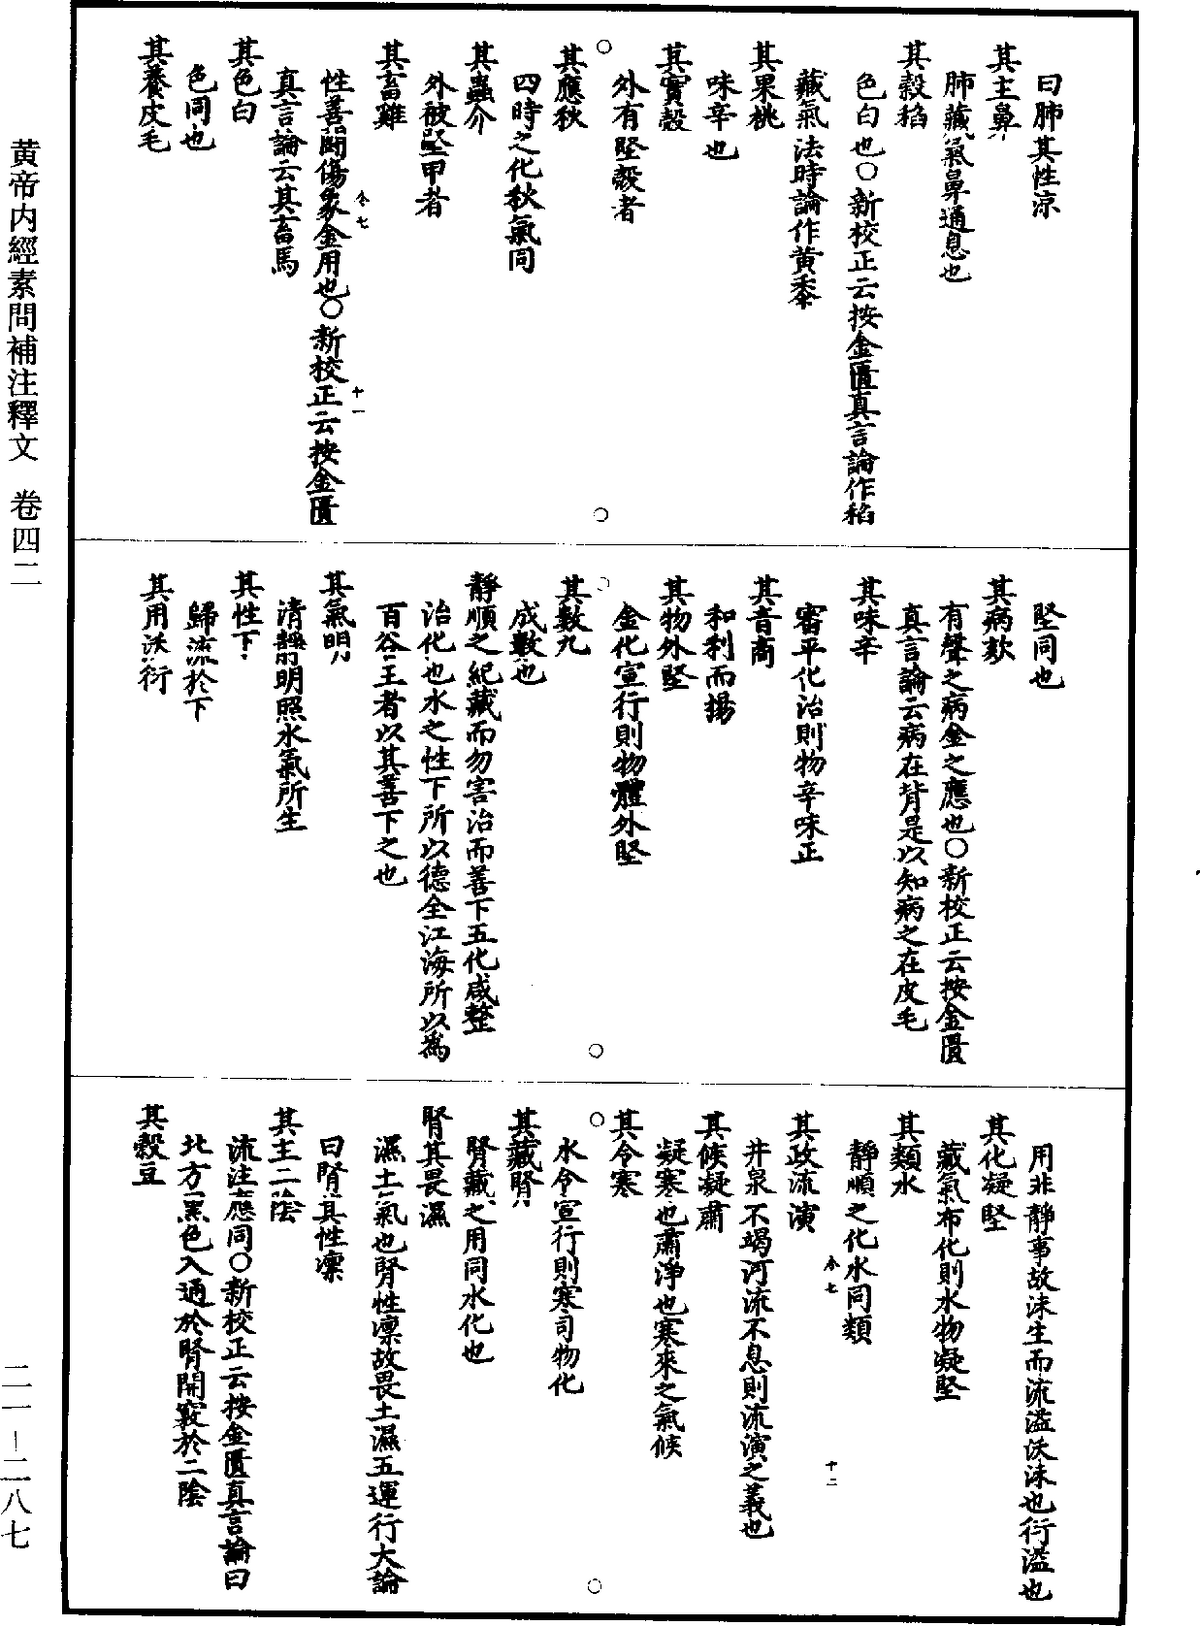 曰肺其性涼
其主鼻
肺藏氣鼻通息也
其穀稻
色白也○新校正云按金匱真言論作稻
藏氣法時論作黃黍
其果桃
味辛也
其實殼
外有堅殼者
其應秋
四時之化秋氣同
其蟲介
外被堅甲者
其畜雞
性善鬪傷象金用也○新校正云按金匱
真言論云其畜馬
其色白
色同也
其養皮毛
堅同也
其病欬
有聲之病金之應也○新校正云按金匱
真言論云病在背是以知病之在皮毛
其味辛
審平化治則物辛味正
其音商
和利而揚
其物外堅
金化宣行則物體外堅
其數九
成數也
靜順之紀藏而勿害治而善下五化咸整
治化也水之性下所以德全江海所以為
百谷王者以其善下之也
其氣明
清靜明照水氣所生
其性下
歸流於下
其用沃衍
用非靜事故沫生而流溢沃沫也衍溢也
其化凝堅
藏氣布化則水物凝堅
其類水
靜順之化水同類
其政流演
井泉不竭河流不息則流演之義也
其候凝肅
凝寒也肅淨也寒來之氣候
其令寒
水令宣行則寒司物化
其藏腎
腎藏之用同水化也
腎其畏濕
濕土氣也腎性凜故畏土濕五運行大論
曰腎其性凜
其主二陰
流注應同○新校正云按金匱真言論曰
北方黑色入通於腎開竅於二陰
其穀豆
黄帝内經素問補注釋文　卷四二
二一—二八七